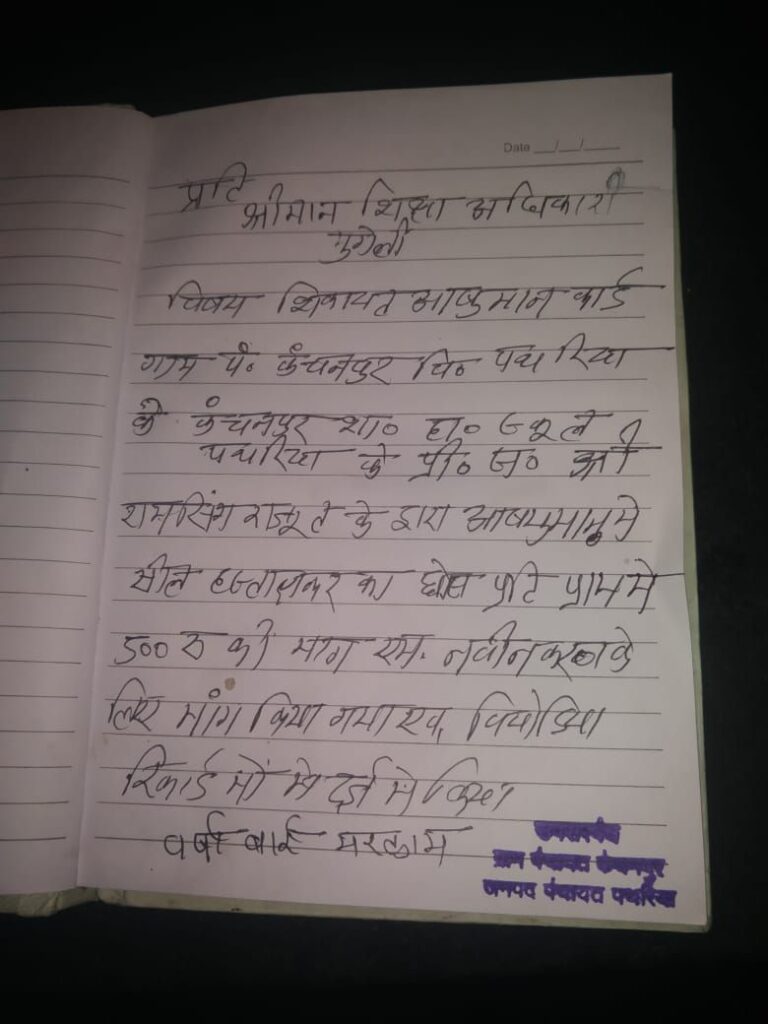 Date __/__/____
प्रति
श्रीमान शिक्षा अधिकारी
मुंगेली
विषय शिकायत आष्युमान कार्ड
ग्राम पं० कंचनपुर वि० पथरिया
के कंचनपुर शा० हा० स्कूल
पथरिया के प्री० ज० श्री
रामसिंग राजपूत के द्वारा आष्युमान मे
सील हस्ताक्षर का प्रति फ्राम मे
500 रु की मांग एम. नवीनकरण के
लिए मांग किया गया एव. वियोडियो
रिकार्ड मों मे दर्ज मे किया
वर्षा बाई मरकाम
उपसरपंच
ग्राम पंचायत कंचनपुर
जनपद पंचायत पथरिया